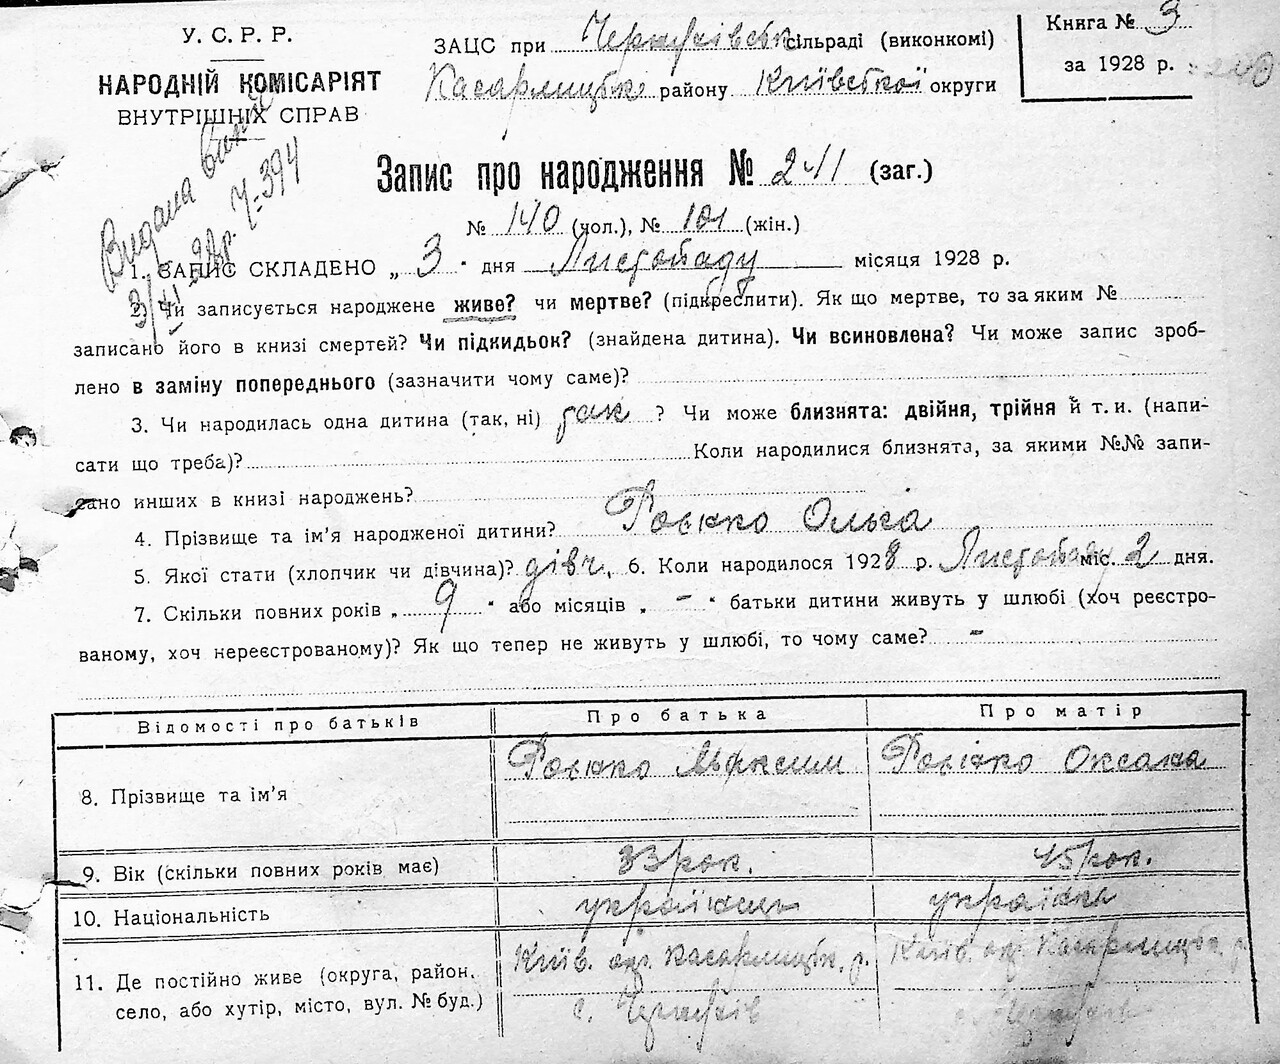 У. С. Р. Р.
НАРОДНІЙ КОМІСАРІЯТ
ВНУТРІШНІХ СПРАВ
ЗАЦС при сільраді (виконкомі)
Кагарлицьк району Київської округи
Книга № 3
за 1928 р.
Видана
Запис про народження № 241 (заг.)
№ 140 (чол.), № 101 (жін.)
1. ЗАПИС СКЛАДЕНО „ 3 " дня Листопаду місяця 1928 р.
2) Чи записується народжене живе? чи мертве? (підкреслити). Як що мертве, то за яким №
записано його в книзі смертей? Чи підкидьок? (знайдена дитина). Чи всиновлена? Чи може запис зроб-
лено в заміну попереднього (зазначити чому саме)?
3. Чи народилась одна дитина (так, ні) так ? Чи може близнята: двійня, трійня й т. и. (напи-
сати що треба)? Коли народилися близнята, за якими №№ запи-
сано инших в книзі народжень?
4. Прізвище та ім'я народженої дитини? Роєнко Ольга
5. Якої стати (хлопчик чи дівчина)? дівч. 6. Коли народилося 1928 р. Листопаду міс. 2 дня.
7. Скільки повних років „ 9 " або місяців „ - " батьки дитини живуть у шлюбі (хоч реєстро-
ваному, хоч нереєстрованому)? Як що тепер не живуть у шлюбі, то чому саме? -
Відомості про батьків Про батька Про матір
8. Прізвище та ім'я Роєнко Максим Роєнко Оксана
9. Вік (скільки повних років має) 33 рок. 45 рок.
10. Національність українець українка
11. Де постійно живе (округа, район, Київ. окр. Кагарлицьк. р. Київ. окр. Кагарлицьк. р.
село, або хутір, місто, вул. № буд.) с.